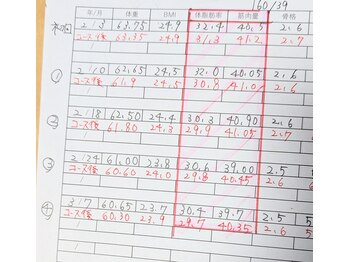 160/39
年/月 体重 BMI 体脂肪率 筋肉量 骨格
初回 2/3 63.75 24.9 32.4 40.5 2.6
コース後 63.35 24.9 31.3 41.2 2.7
① 2/10 62.65 24.5 32.0 40.05 2.6
コース後 61.9 24.5 30.9 41.0 2.6
② 2/18 62.50 24.4 30.3 40.90 2.6
コース後 61.80 24.3 29.9 41.05 2.7
③ 2/24 61.00 23.8 30.6 39.00 2.5
コース後 60.60 24.0 29.8 40.45 2.6
④ 3/7 60.65 23.7 30.4 39.7 2.5
コース後 60.30 23.9 29.7 40.35 2.6